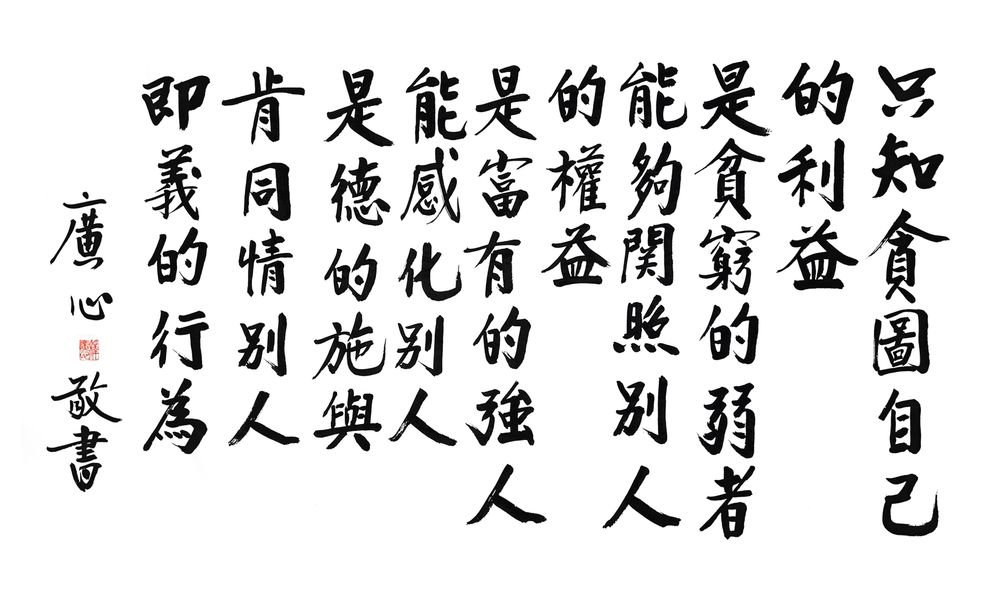 只知貪圖自己
的利益
是貧窮的弱者
能夠関照别人
的權益
是富有的強人
能感化别人
是德的施與
肯同情别人
即義的行為
廣心
敬書